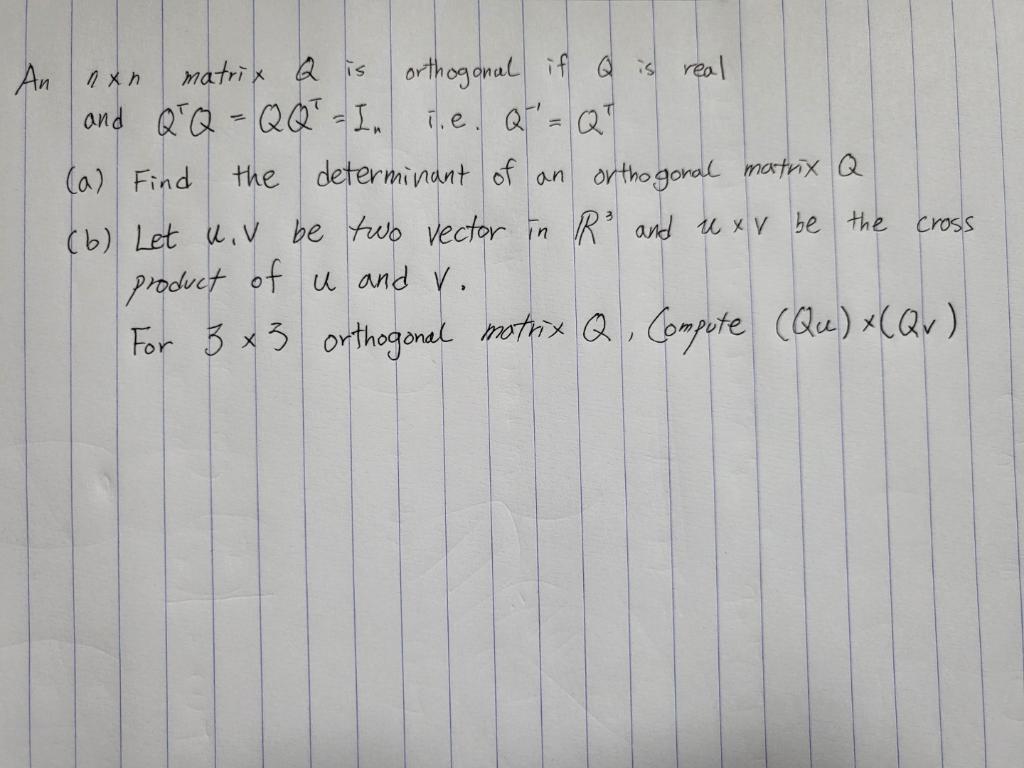 An n×n matrix Q is orthogonal if Q is real
and QᵀQ = QQᵀ = Iₙ i.e. Q⁻¹ = Qᵀ
(a) Find the determinant of an orthogonal matrix Q
(b) Let u,v be two vector in R³ and u×v be the cross
product of u and v.
For 3×3 orthogonal matrix Q, Compute (Qu)×(Qv)